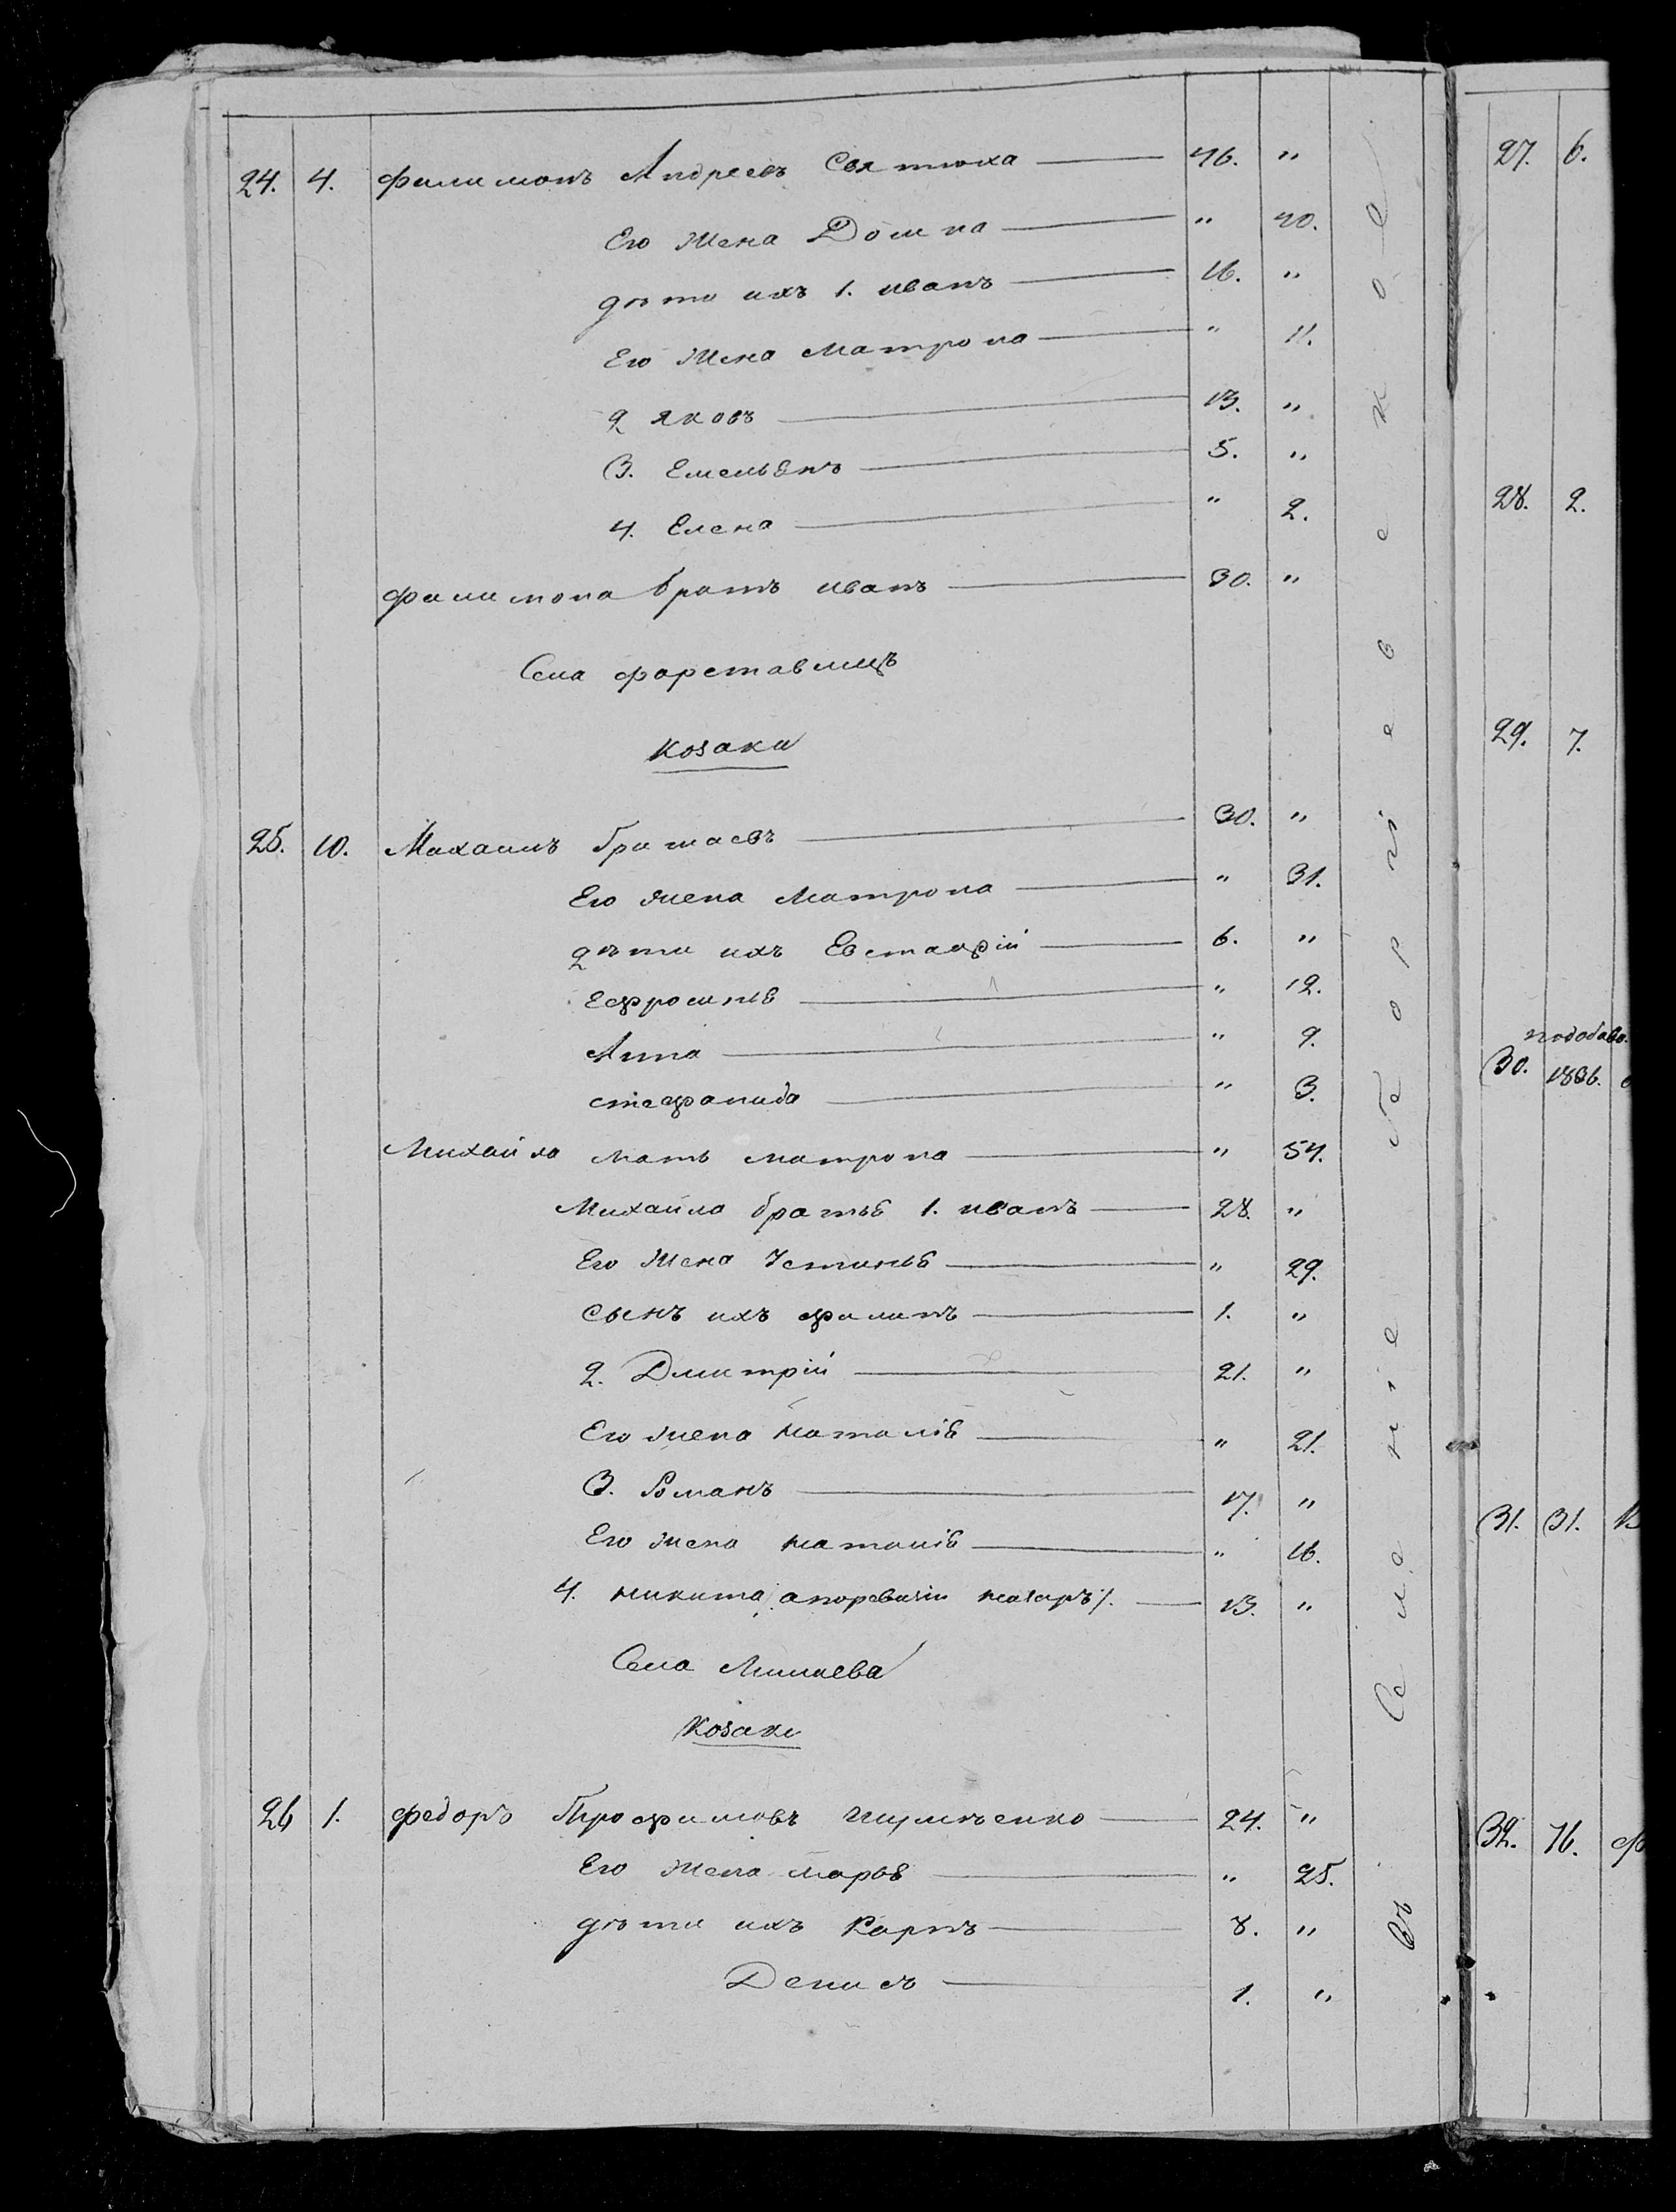 24. 4. Филимонъ Андреевъ Святюха — 46. "
Его жена Домна — " 40.
дѣти ихъ 1. Иванъ — 16. "
Его жена Матрона — " 11.
2 Яковъ — 13. "
3. Емельянъ — 5. "
4. Елена — " 2.
Филимона братъ Иванъ — 30. "
Села Форставицъ
Козаки
25. 10. Михаилъ — 30. "
Его жена Матрона — " 31.
дѣти ихъ Евстафій — 6. "
Ефросинія — " 12.
Анна — " 9.
Стефанида — " 3.
Михайла мать Матрона — " 54.
Михайла братья 1. Иванъ — 28. "
Его жена Устинья — " 29.
сынъ ихъ Филипъ — 1. "
2. Дмитрій — 21. "
Его жена Наталія — " 21.
3. Романъ — 17. "
Его жена Наталія — " 16.
4. Никита — 13. "
Села Минаева
Козаки
26 1. Федоръ Трофимовъ — 24. "
Его жена Марья — " 25.
дѣти ихъ Карпъ — 8. "
Денисъ — 1. "
Въ Селеніе
27. 6.
28. 2.
29. 7.
30. 1836.
31. 31.
32. 76.